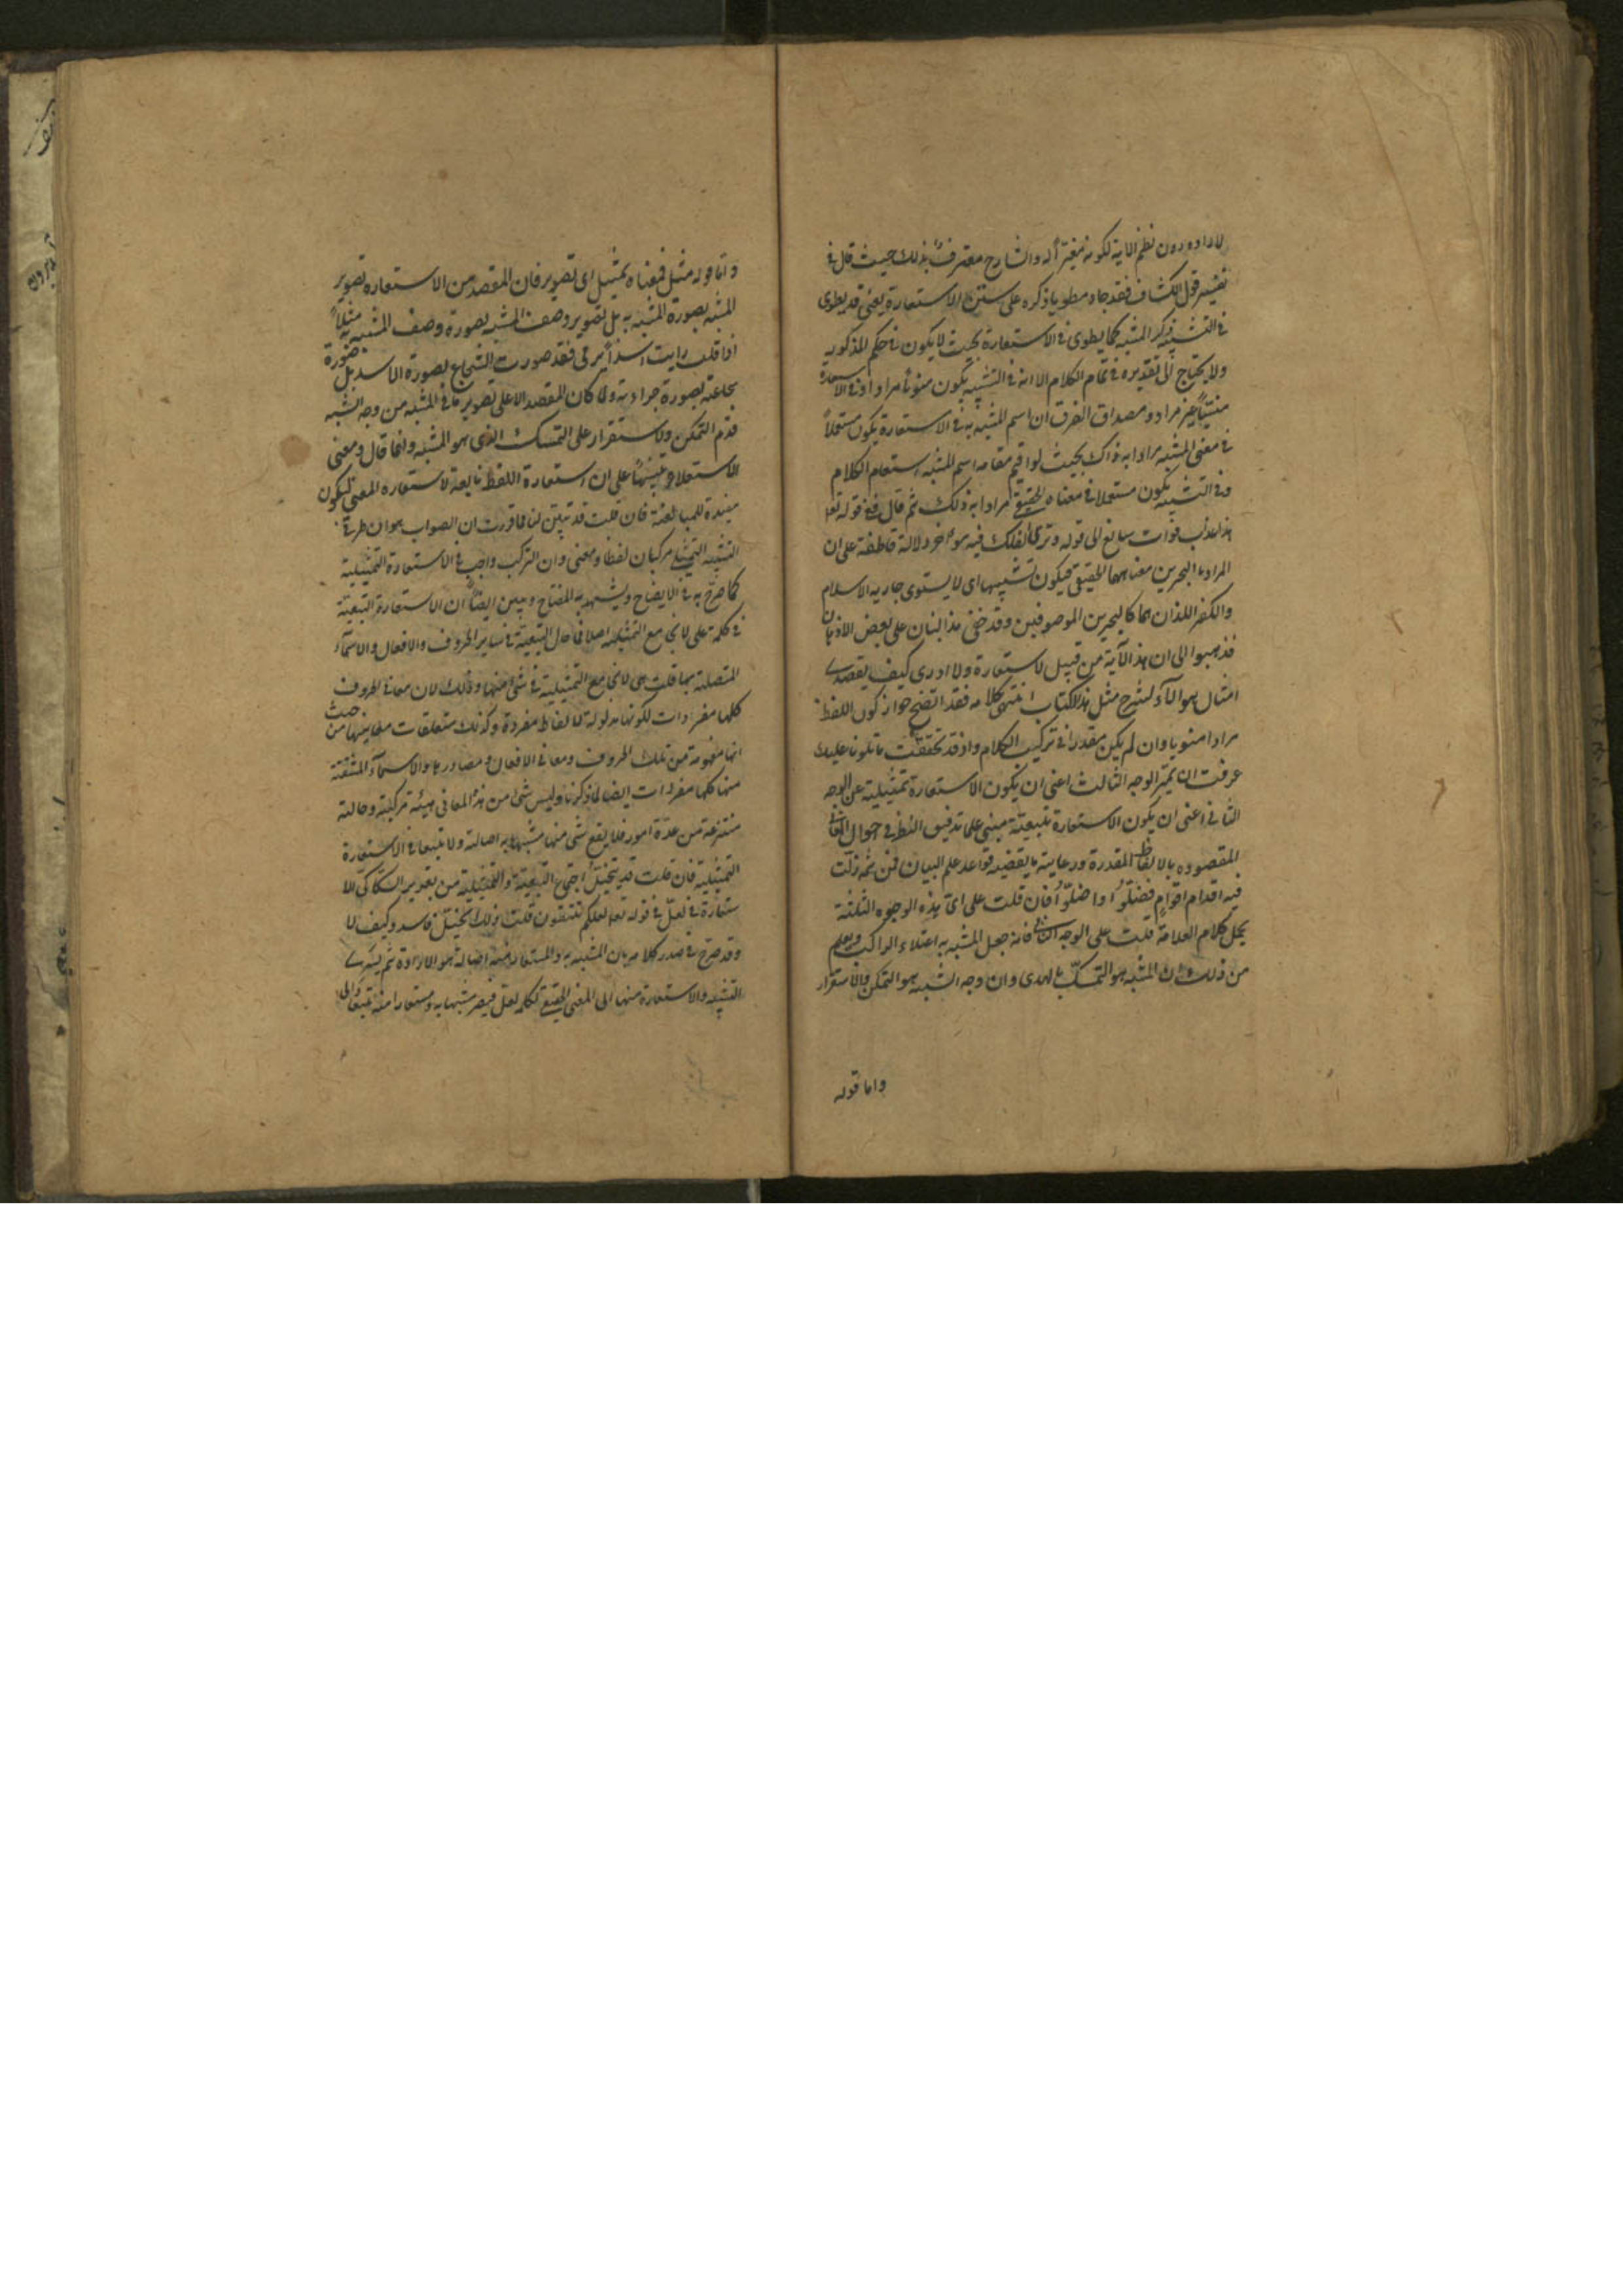 لارادوه دون نظم الاية لكونه مغيرا له والشارح معترف بذلك حيث قال في
تفسير قول الكشاف فقد جاء مطويا ذكره على سنن الاستعارة يعني قد يطوى
في التشبيه ذكر المشبه كما يطوى في الاستعارة بحيث لا يكون في حكم المذكور
ولا يحتاج الى تقديره في تمام الكلام الا انه في التشبيه يكون منويا مرادا وفي الاستعارة
منسيا غير مراد ومصداق الفرق ان اسم المشبه به في الاستعارة يكون مستعملا
في معنى المشبه مرادا به ذاك بحيث لو اقيم مقامه اسم المشبه استقام الكلام
وفي التشبيه يكون مستعملا في معناه الحقيقي مرادا به ذلك ثم قال ففي قوله تعا
هذا عذب فرات سائغ الى قوله وترى الفلك فيه مواخر دلالة قاطعة على ان
المراد بالبحرين معناهما الحقيقي فيكون تشبيها اى لا يستوى الاسلام
والكفر اللذان هما كالبحرين الموصوفين وقد خفي هذا البيان على بعض الاذهان
فذهبوا الى ان هذه الآية من قبيل الاستعارة ولا ادرى كيف يتصدى
امثال هؤلاء لشرح مثل هذا الكتاب انتهى كلامه فقد اتضح جواز كون اللفظ
مرادا منويا وان لم يكن مقدرا في تركيب الكلام واذ قد تحققت ما تلونا عليك
عرفت ان تميز الوجه الثالث اعني ان يكون الاستعارة تمثيلية عن الوجه
الثاني اعني ان يكون الاستعارة تبعية مبني على تدقيق النظر في احوال المعاني
المقصودة بالالفاظ المقدرة ورعاية ما يقتضيه قواعد علم البيان فمن ثمه زلت
فيه اقدام اقوام فضلوا واضلوا فان قلت على اى هذه الوجوه الثلثة
يحمل كلام العلامة قلت على الوجه الثاني فانه جعل المشبه به اعتلاء الراكب ويعلم
من ذلك ان المشبه هو التمسك بالهدى وان وجه الشبه هو التمكن والاستقرار
واما قوله
واما قوله مثل فمعناه تمثيل اى تصوير فان المقصد من الاستعارة تصوير
المشبه بصورة المشبه به بل تصوير وصف المشبه بصورة وصف المشبه به مثلا
اذا قلت رايت اسدا يرمي فقد صورت الشجاع بصورة الاسد بل صورة
شجاعته بصورة جراءته ولما كان المقصد الاعلى تصوير ما في المشبه من وجه الشبه
قدم التمكن والاستقرار على التمسك الذى هو المشبه وانما قال ومعنى
الاستعلاء تنبيها على ان استعارة اللفظ تابعة لاستعارة المعنى ليكون
مفيدة للمبالغة فان قلت قد تبين لنا مما قررت ان الصواب هو ان طرفي
التشبيه التمثيلي مركبان لفظا ومعنى وان التركب واجب في الاستعارة التمثيلية
كما صرح به في الايضاح ويشهد به المفتاح وتبين ايضا ان الاستعارة التبعية
في كلمة على لا تجامع التمثيلية اصلا فما حال التبعية في ساير الحروف والافعال والاسماء
المتصلة بها قلت هى لا تجامع التمثيلية في شئ منها وذلك لان معاني الحروف
كلها مفردات لكونها مدلولة لالفاظ مفردة وكذلك متعلقات معانيها من حيث
انها مفهومة من تلك الحروف ومعاني الافعال ومصادرها والاسماء المشتقة
منها كلها مفردات ايضا لما ذكرنا وليس شئ من هذه المعاني هيئة مركبة وحالة
منتزعة من عدة امور فلا يقع شئ منها مشبها به اصالة ولا تبعا في الاستعارة
التمثيلية فان قلت قد يتخيل اجتماع التبعية والتمثيلية من تقدير السكاكي الا
ستعارة في لعل في قوله تعا لعلكم تتقون قلت ذلك تخيل فاسد وكيف لا
وقد صرح في صدر كلامه بان المشبه به والمستعار منه اصالة هو الارادة ثم يسرى
التشبيه والاستعارة منها الى المعنى الحقيقي لكلمة لعل فيصير مشبها به ومستعارا منه تبعا والى